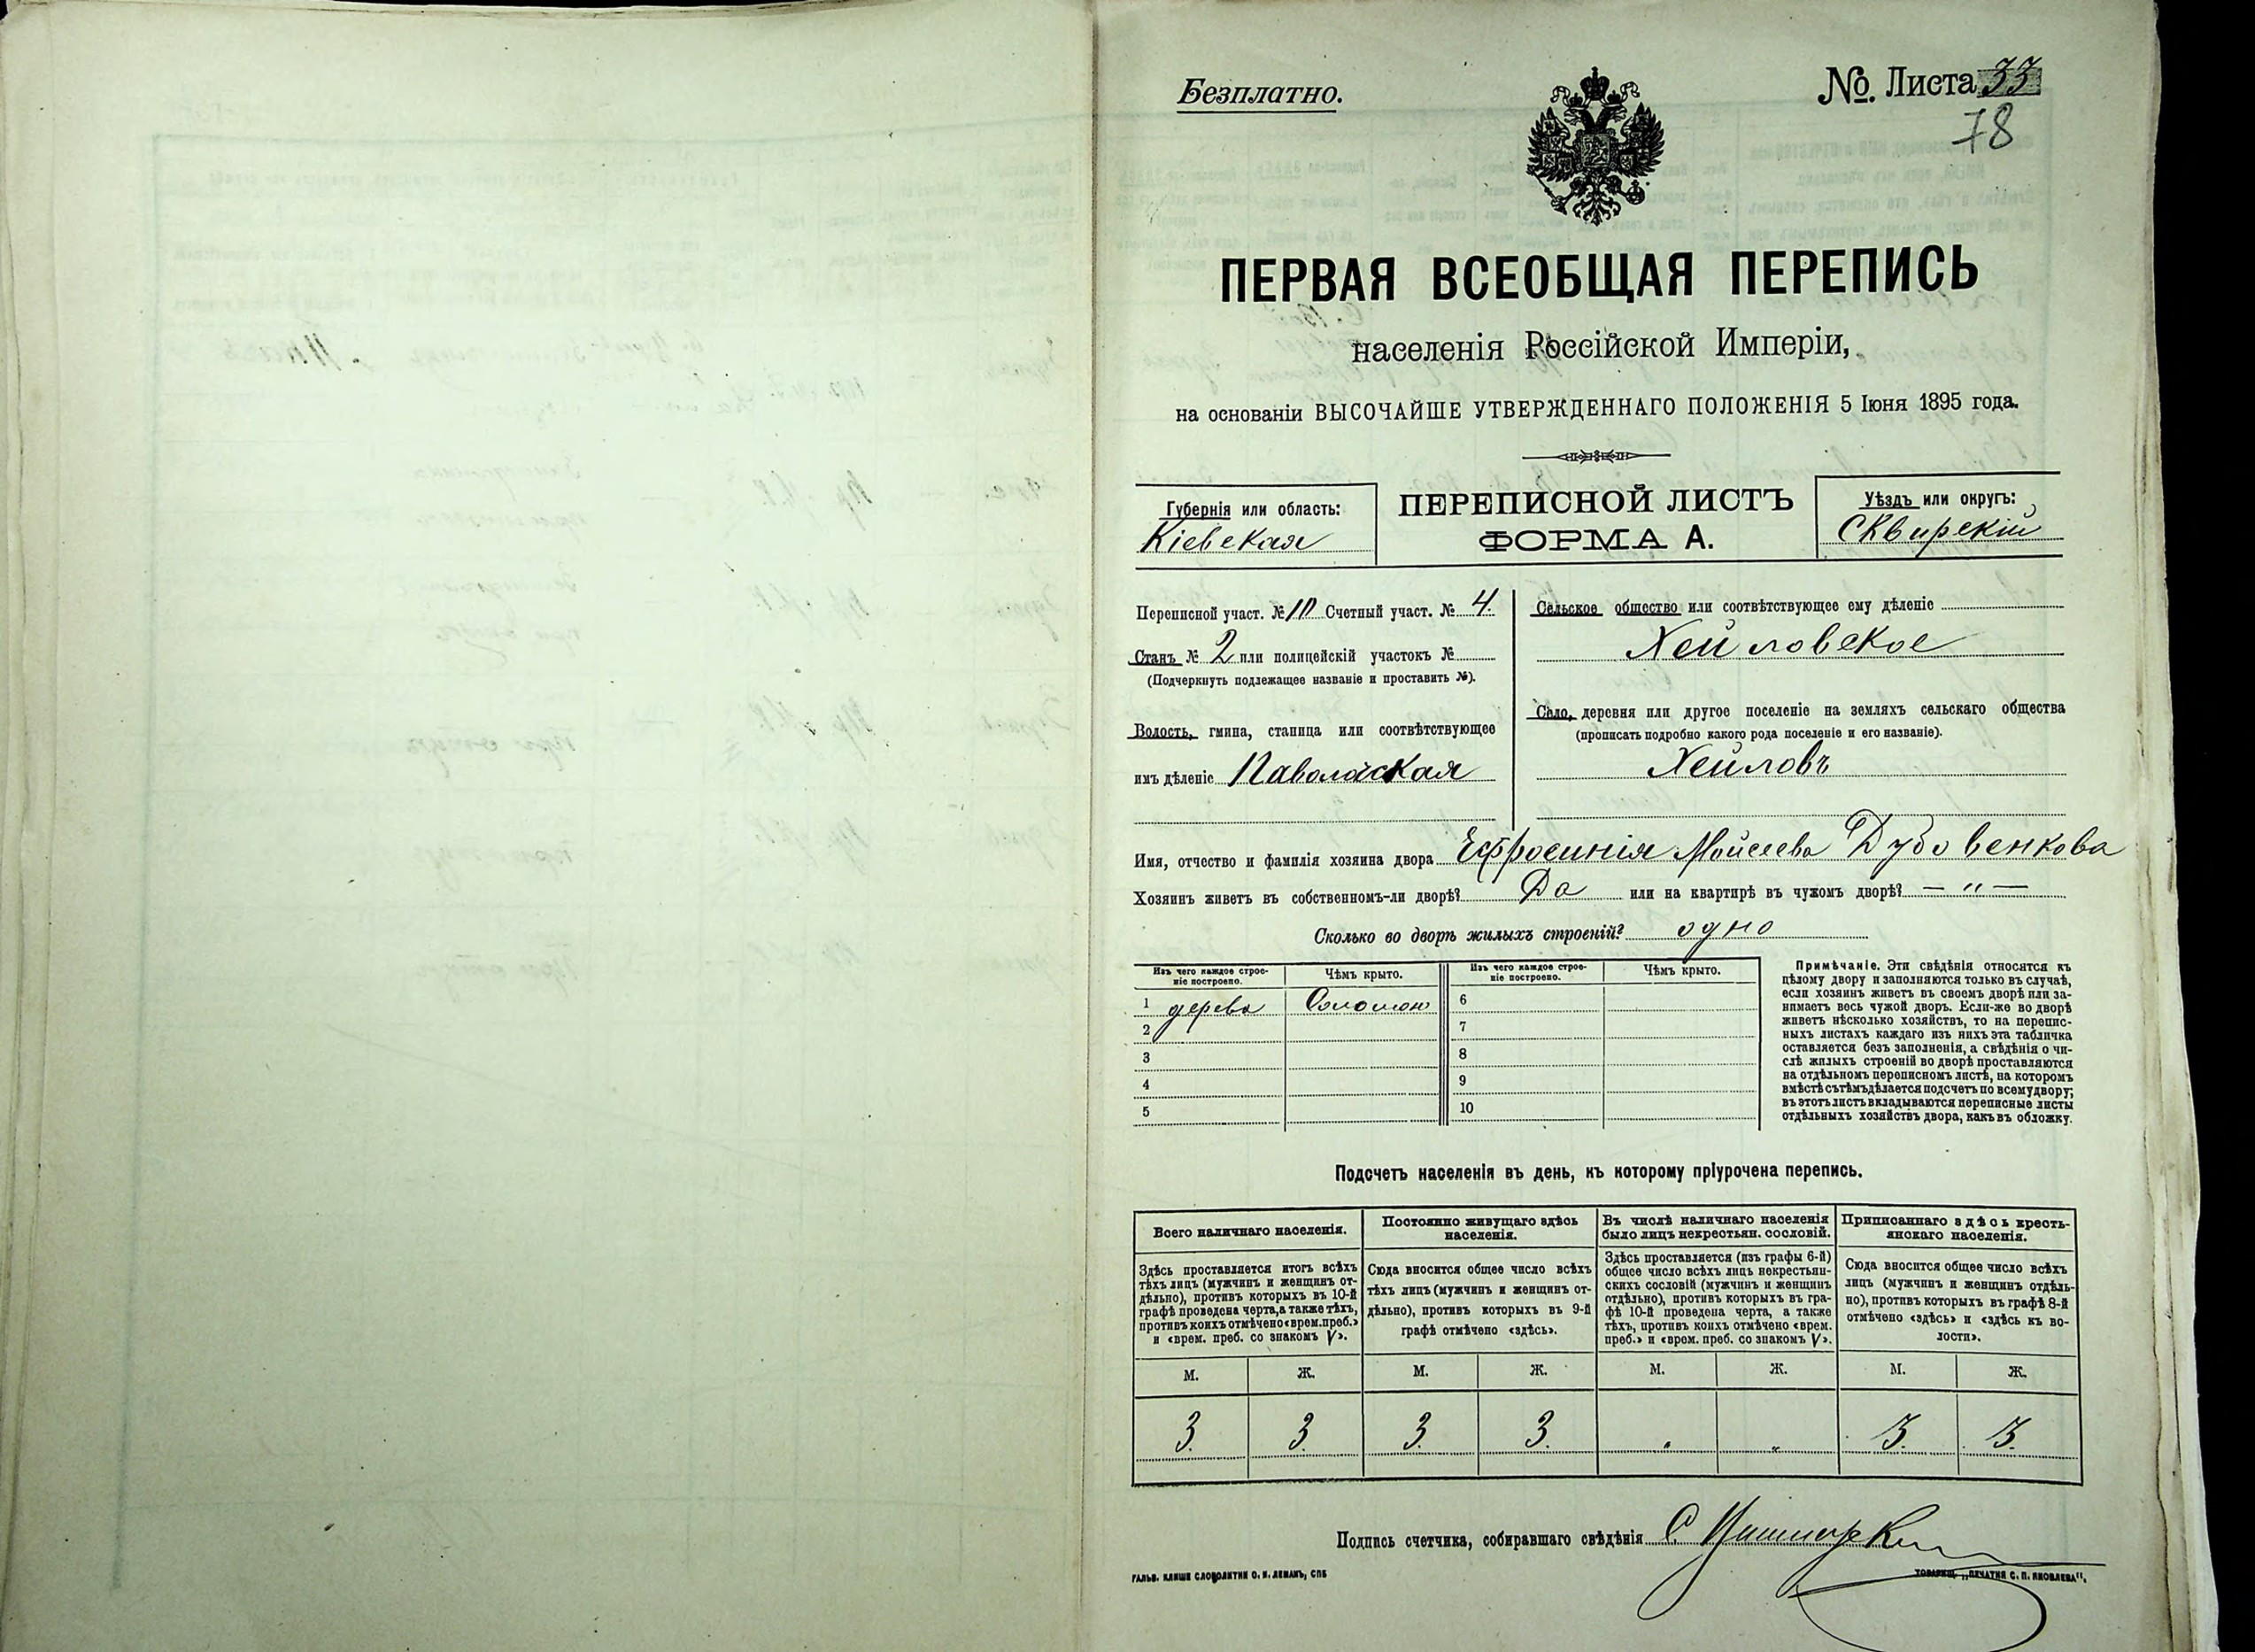 Безплатно.
№ Листа 33
78
ПЕРВАЯ ВСЕОБЩАЯ ПЕРЕПИСЬ
населенія Россійской Имперіи,
на основаніи ВЫСОЧАЙШЕ УТВЕРЖДЕННАГО ПОЛОЖЕНІЯ 5 Іюня 1895 года.
Губернія или область:
Кіевская
ПЕРЕПИСНОЙ ЛИСТЪ
ФОРМА А.
Уѣздъ или округъ:
Сквирскій
Переписной участ. № 10 Счетный участ. № 4.
Станъ № 2 или полицейскій участокъ №
(Подчеркнуть подлежащее названіе и проставить №).
Волость, гмина, станица или соотвѣтствующее
имъ дѣленіе Паволочская
Сельское общество или соотвѣтствующее ему дѣленіе
Хейловское
Село, деревня или другое поселеніе на земляхъ сельскаго общества
(прописать подробно какого рода поселеніе и его названіе).
Хейловъ
Имя, отчество и фамилія хозяина двора Ефросинія Мойсеева Дубовенкова
Хозяинъ живетъ въ собственномъ-ли дворѣ? Да или на квартирѣ въ чужомъ дворѣ? — " —
Сколько во дворѣ жилыхъ строеній? одно
Изъ чего каждое строе-
ніе построено.
Чѣмъ крыто.
Изъ чего каждое строе-
ніе построено.
Чѣмъ крыто.
1 дерева Соломою 6
2 7
3 8
4 9
5 10
Примѣчаніе. Эти свѣдѣнія относятся къ
цѣлому двору и заполняются только въ случаѣ,
если хозяинъ живетъ въ своемъ дворѣ или за-
нимаетъ весь чужой дворъ. Если-же во дворѣ
живетъ нѣсколько хозяйствъ, то на перепис-
ныхъ листахъ каждаго изъ нихъ эта табличка
оставляется безъ заполненія, а свѣдѣнія о чи-
слѣ жилыхъ строеній во дворѣ проставляются
на отдѣльномъ переписномъ листѣ, на которомъ
вмѣстѣ съ тѣмъ дѣлается подсчетъ по всему двору;
въ этотъ листъ вкладываются переписные листы
отдѣльныхъ хозяйствъ двора, какъ въ обложку.
Подсчетъ населенія въ день, къ которому пріурочена перепись.
Всего наличнаго населенія.
Здѣсь проставляется итогъ всѣхъ
тѣхъ лицъ (мужчинъ и женщинъ от-
дѣльно), противъ которыхъ въ 10-й
графѣ проведена черта, а также тѣхъ,
противъ коихъ отмѣчено «врем. преб.»
и «врем. преб. со знакомъ V».
Постоянно живущаго здѣсь
населенія.
Сюда вносится общее число всѣхъ
тѣхъ лицъ (мужчинъ и женщинъ от-
дѣльно), противъ которыхъ въ 9-й
графѣ отмѣчено «здѣсь».
Въ числѣ наличнаго населенія
было лицъ некрестьян. сословій.
Здѣсь проставляется (изъ графы 6-й)
общее число всѣхъ лицъ некрестьян-
скихъ сословій (мужчинъ и женщинъ
отдѣльно), противъ которыхъ въ гра-
фѣ 10-й проведена черта, а также
тѣхъ, противъ коихъ отмѣчено «врем.
преб.» и «врем. преб. со знакомъ V».
Приписаннаго здѣсь кресть-
янскаго населенія.
Сюда вносится общее число всѣхъ
лицъ (мужчинъ и женщинъ отдѣль-
но), противъ которыхъ въ графѣ 8-й
отмѣчено «здѣсь» и «здѣсь къ во-
лости».
М. Ж. М. Ж. М. Ж. М. Ж.
3. 3. 3. 3. " " 3. 3.
Подпись счетчика, собиравшаго свѣдѣнія С.
ГАЛЬВ. КЛИШЕ СЛОВОЛИТНИ О. И. ЛЕМАНЪ, СПБ
ТОВАРИЩ. „ПЕЧАТНЯ С. П. ЯКОВЛЕВА“.